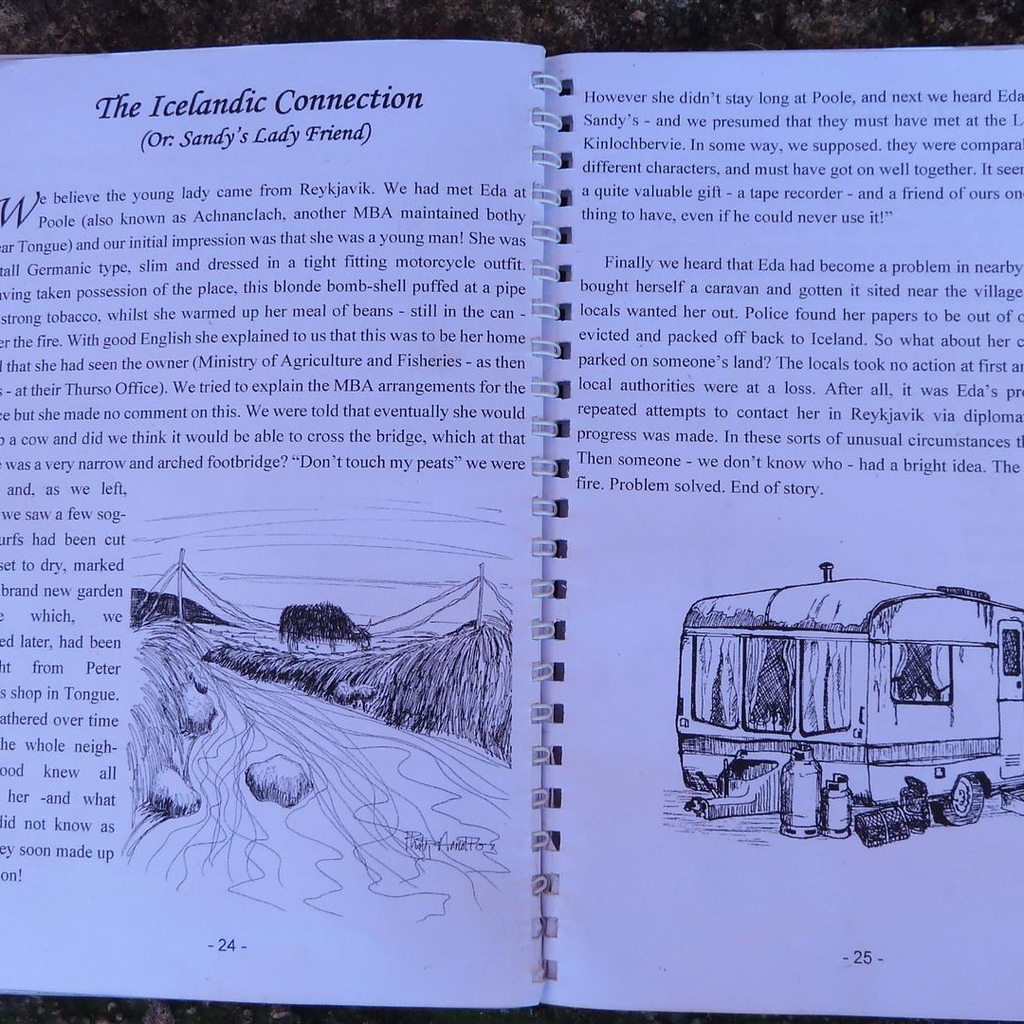 The Icelandic Connection
(Or: Sandy's Lady Friend)
We believe the young lady came from Reykjavik. We had met Eda at
Poole (also known as Achnanclach, another MBA maintained bothy
ear Tongue) and our initial impression was that she was a young man! She was
tall Germanic type, slim and dressed in a tight fitting motorcycle outfit.
ving taken possession of the place, this blonde bomb-shell puffed at a pipe
strong tobacco, whilst she warmed up her meal of beans - still in the can -
er the fire. With good English she explained to us that this was to be her home
l that she had seen the owner (Ministry of Agriculture and Fisheries - as then
s - at their Thurso Office). We tried to explain the MBA arrangements for the
ce but she made no comment on this. We were told that eventually she would
p a cow and did we think it would be able to cross the bridge, which at that
e was a very narrow and arched footbridge? "Don't touch my peats" we were
and, as we left,
we saw a few sog-
urfs had been cut
set to dry, marked
brand new garden
e which, we
ed later, had been
ht from Peter
s shop in Tongue.
athered over time
he whole neigh-
ood knew all
her -and what
did not know as
ey soon made up
on!
- 24 -
However she didn't stay long at Poole, and next we heard Eda
Sandy's - and we presumed that they must have met at the L
Kinlochbervie. In some way, we supposed. they were compara
different characters, and must have got on well together. It seem
a quite valuable gift - a tape recorder - and a friend of ours on
thing to have, even if he could never use it!"
Finally we heard that Eda had become a problem in nearby
bought herself a caravan and gotten it sited near the village
locals wanted her out. Police found her papers to be out of
evicted and packed off back to Iceland. So what about her c
parked on someone's land? The locals took no action at first an
local authorities were at a loss. After all, it was Eda's pr
repeated attempts to contact her in Reykjavik via diploma
progress was made. In these sorts of unusual circumstances th
Then someone - we don't know who - had a bright idea. The
fire. Problem solved. End of story.
- 25 -